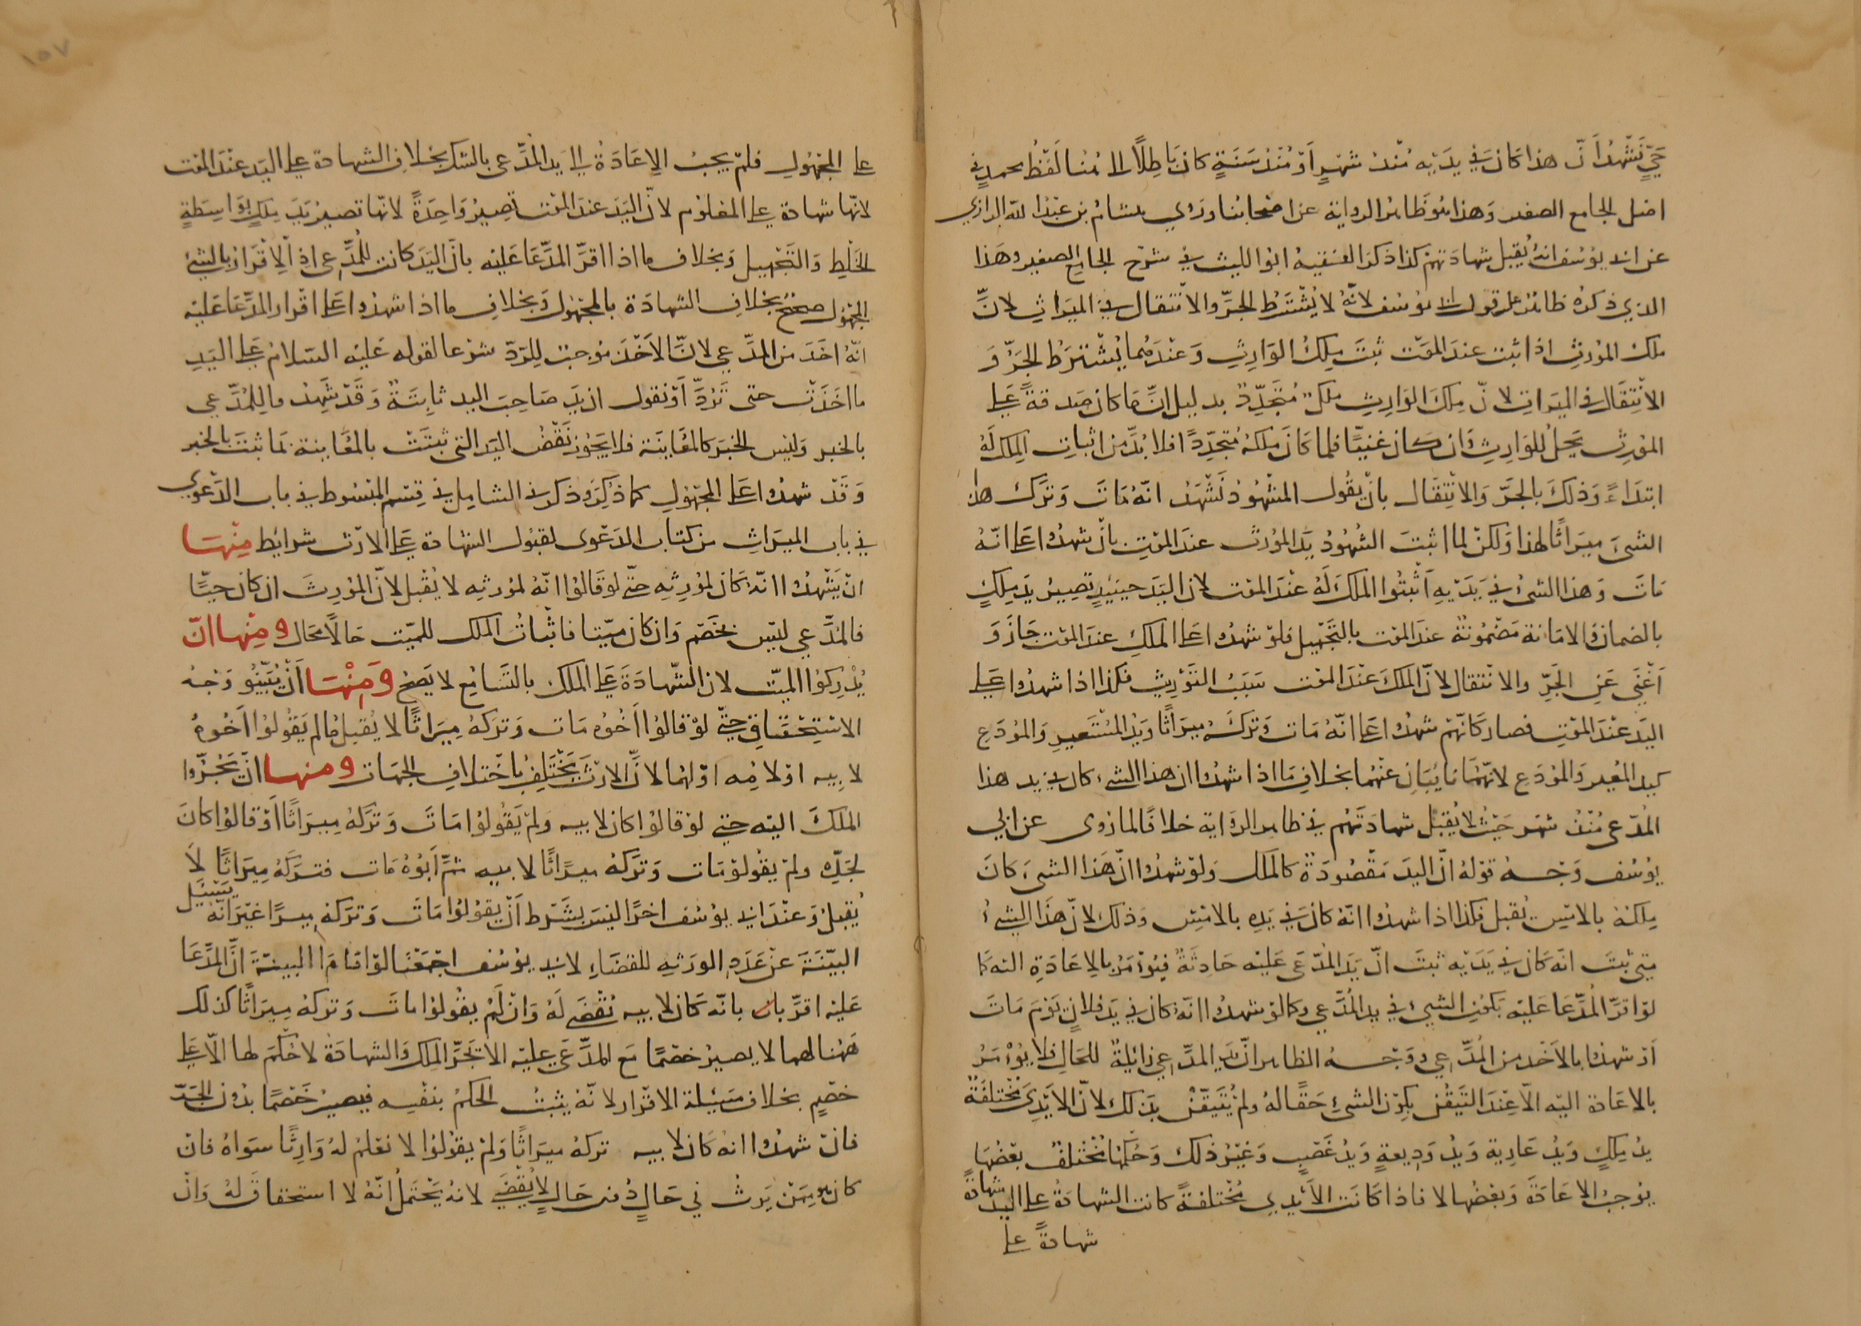 حيٍّ نَشْهَدُ أنّ هذا كان في يديه مُنْذُ شهرٍ أو مُنْذُ سَنَةٍ كان باطلًا الى هُنا لَفْظُ محمدٍ في
اصْل الجامع الصغير وهذا هو ظاهر الرواية عن اصحابنا وروى هشام بن عبد الله الرازي
عن ابى يوسف انّهُ يُقبل شهادتهم كذا ذكر الفقيه ابو الليث في شرح الجامع الصغير وهذا
الذي ذكره ظاهر على قول ابى يوسف لانّهُ لا يُشْتَرَطُ الجرّ والانتقال في الميراث لانّ
ملك المورث اذا ثبت عند الموت ثبتَ مِلكُ الوارِثِ وَعندهما يُشْترَطُ الجَرّ وَ
الانتقال في الميراث لانّ مِلكَ الوارِثِ ملكٌ مُتَجَدِّدٌ بدليل انّ ما كان صَدقةً على
المورث يَحِلّ للوَارِثِ وَان كان غنيًّا فلما كَانَ ملكهُ مُتجدّدًا فلا بُدَّ من اثبات المِلك لَهُ
ابتداءً وَذلكَ بالجرّ وَالانتقال بانْ يقُول الشهُودُ نَشْهَدُ انّهُ مَاتَ وَتركَ هذا
الشئَ ميرَاثًا لهذا وَلكنْ لما اثبتَ الشهُودُ يَدَ المُورث عند الموْتِ بانْ شهدُوا عَلى انّهُ
مَاتَ وَهذا الشئُ في يَدَيْهِ اَثْبتُوا الملكَ لهُ عنْدَ الموْت لان اليَدَ حينَئِذٍ تصِيرُ يَدَ مِلكٍ
بالضمان اذ الامَانة مَضْمُونَةٌ عندَ الموْت بالتَّجْهيل فلوْ شهدُوا عَلى الملكِ عندَ الموْت جَازَ وَ
اَغْنَى عَنِ الجَرِّ وَالانتقال لانّ الملكَ عنْدَ الموْت سَبَبُ التوْريث فكذا اذا شهدُوا على
اليَدِ عنْدَ الموْتِ فصار كَانّهُمْ شهدُوا عَلى انّهُ مَات وَتركَهُ ميرَاثًا وَيَدُ المُسْتَعيرِ وَالمُودَعِ
كيد المُعير وَالمُودِعِ لانّهُمَا نايُبَانِ عنْهُما بخلافِ مَا اذا شهدُوا ان هذا الشئ كان في يد هذا
المُدّعى مُنْذُ شهْر حَيْثُ لا يُقْبَلُ شهادَتهُمْ في ظاهر الروَاية خلافًا لما رُوى عن ابى
يوْسُف وَجْهُ قوْلهُ انّ اليَدَ مَقْصُودَةٌ كالملك وَلوْ شهدُوا انّ هَذا الشئَ كانَ
مِلكهُ بالامْسِ يُقبل فكذا اذا شهدُوا انّهُ كانَ في يَدهِ بالامْسِ وَذلك لانّ هَذا الشئُ
متى ثبتَ انّه كان في يَدَيْه ثبتَ انّ يَدَ المُدّعَى عَليْه حَادثَةٌ فيُوْمَرُ بالاعَادَةِ اليْه كما
لوْ اقرّ المُدّعَا عَليْه بكوْنِ الشئِ في يد المُدّعى وكما لوْ شهدُوا انّهُ كان في يَدِ فلانٍ يَوْم مَاتَ
اوْ شهدُوا بالاَخْذِ من المُدّعِى وَوَجْهُ الظاهر انّ يَدَ المدّعِى زائلةٌ للحَالِ فلا يُوْمَرُ
بالاعَادة اليْه الاّ عِنْدَ التَيَقُّن بكوْن الشئِ حَقًّا لهُ وَلمْ يُتَيَقّنْ بذلك لانّ الاَيْدِى مُخْتلفَةٌ
يَدُ مِلكٍ وَيَدُ عَارِيةٍ وَيَدُ وَدِيعةٍ وَيَدُ غَصْبٍ وَغيْرُ ذلك وَحُكمُهَا مُخْتلفٌ بعْضُهَا
يوْجبُ الاعَادَةَ وَبعْضُها لا فاذا كانَت الاَيْدِى مُخْتلفةً كانت الشهادةُ على اليد شهادةً
شهادةً على
على المجْهُولِ فلمْ يجبُ الاِعَادَةُ الى يد المُدَّعى بالشك بخلافِ الشهادة على اليَد عنْدَ الموْت
لانّها شهادة على المعْلوْم لانّ اليَدَ عندَ الموْت تصِيرُ وَاحِدَةً لانّها تصيرُ يَدَ مِلكٍ بوَاسِطَةِ
الخَلْطِ وَالتَّجْهِيل وَبخلاف ما اذا اقرَّ المدَّعَا عَليْه بانّ اليَدَ كانت للمُدّعى اذِ الاِقْرَارُ بالشئ
المجْهُول صَحيْحٌ بخلافِ الشهادَة بالمجْهُول وَبخلافِ ما اذا شهدُوا على اقرارِ المدّعَا عَليْه
انّهُ اخَذَ من المدَّعى لانّ الاَخْذَ مُوْجبٌ لِلرَدّ شرْعًا لقوْلهِ عَليْه السّلامُ عَلى اليَدِ
ما اخَذَتْ حتى تَرُدَّ اَوْ نقول ان يَدَ صَاحِبَ اليد ثابتَةٌ وَقَدْ شَهِدُوا لِلمُدَّعى
بالخبر وَليْس الخبَرُ كالمعَاينَة فلا يَجُوزُ نَقْضُ اليَد التى ثبَتَتْ بالمعَاينة بمَا ثبتَ بالخبَر
وَقَدْ شهدُوا عَلى المجْهُولِ كما ذكِرَ وذكر في الشامِل في قِسْم المبْسُوط في باب الدَعْوى
في باب الميْرَاثِ من كتاب الدَعْوى لقبُول الشهادة على الارْث شرائِط مِنْهَا
انْ يَشْهدُوا انّهُ كَانَ لموْرِثِهِ حَتّى لوْ قَالوُا انّهُ لموْرثِه لا يُقْبلُ لانّ المورِثَ ان كانَ حيًّا
فالمُدَّعى ليْسَ بخَصْم وَان كان ميّتا فاثباتُ الملك للميّت حَالاً محَال وَمِنْها انّ
يُدْرِكوُا الميّت لان الشهَادَةَ عَلى الملك بالتّسَامُعِ لا يَصِحُّ وَمنْهَا اَنْ يُبَيّنُو وَجْهَ
الاسْتِحْقاقِ حتى لوْ قالوُا اَخُوهُ مَات وَتركهُ مِيرَاثًا لا يُقبلُ ما لمْ يَقُولوُا اَخُوهُ
لابيه اوْ لامِّهِ اوْ لهُما لانّ الارْثَ يَخْتَلِفُ باخْتلافِ الجهَات وَمنها انْ يَجُرّوا
الملكَ اليْه حتى لوْ قالوُا كان لابيه وَلمْ يَقُولوُا مَاتَ وَتركهُ مِيرَاثًا اَوْ قالوُا كانَ
لجَدِّه ولمْ يقُولوْ مَات وَتركهُ ميراثًا لابيه ثمَّ اَبُوهُ مَات فتركَهُ مِيرَاثًا لاَ
يُقبلُ وَعنْدَ ابى يوْسُف اخرًا ليْسَ بشَرْط اَنْ يقوْلوُا مَات وَتركهُ ميرًا غيْرَ انّه يَسْئَل
البيّنةَ عنْ عَدَدِ الوَرَثهِ للقضَاءِ لابى يوْسُف اجمَعْنا لوْ اقامَ البينَةَ انَّ المدَّعَا
عَليْه اقرّ بان بانّه كَانَ لابيه يُقْضَى لهُ وَانْ لَمْ يقُولوُا ماتَ وَتركهُ مِيرَاثًا كذلك
هَهُنا لهما لا يصيرُ خصْمًا مَع المدَّعَى عليْه الا بَجرِّ الملك وَالشهادَة لا حُكمَ لها الاّ على
خصْمٍ بخلاف مَسْئلة الاقْرار لانّهُ يثبتُ الحكمُ بنفْسِه فيصيرُ خَصْمًا بدُون الجَرّ
فانْ شهدُوا انهُ كَانَ لابيه تركهُ ميرَاثًا وَلمْ يقوْلوُا لا نعْلمُ لهُ وَارِثًا سِوَاهُ فان
كان هو مِمّنْ يَرِثُ في حَالٍ دُوْنَ حَالٍ لاَ يُقْضَى لانهُ يَحْتَملُ انّهُ لا استحقاقَ لهُ وَانْ